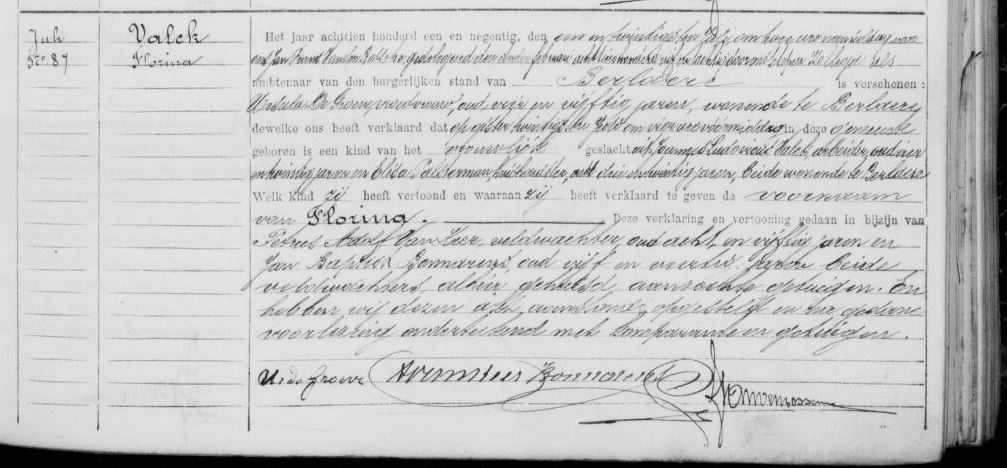 Juli
Nro 87
Valck
Florina
Het jaar achttien honderd een en negentig, den een en twintigsten Juli om twee ure namiddag voor
ons Jan Frans
ambtenaar van den burgerlijken stand van Berlaere is verschenen:
Ursula De Groeve, vroedvrouw, oud vier en vijftig jaren, wonende te Berlaere
dewelke ons heeft verklaard dat op gisteren twintigsten Juli om vier ure voormiddag in deze gemeente
geboren is een kind van het vrouwelijk geslacht uit Joannes Ludovicus Valck, arbeider, oud vier
en twintig jaren en Eliza huishoudster, oud drie en twintig jaren, beide wonende te Berlaere
Welk kind zij heeft vertoond en waaraan zij heeft verklaard te geven de voornaam
van Florina. Deze verklaring en vertooning gedaan in bijzijn van
Petrus Adolf veldwachter, oud acht en vijftig jaren en
Jan Baptist Bonnarens, oud vijf en veertig jaren beide
veldwachters, alhier gehuisd, aanzochte getuigen. En
hebben wij dezen akt, opgesteld en na gedane
voorlezing onderteekend met comparante en getuigen.
Ur de Groeve Bonnarens